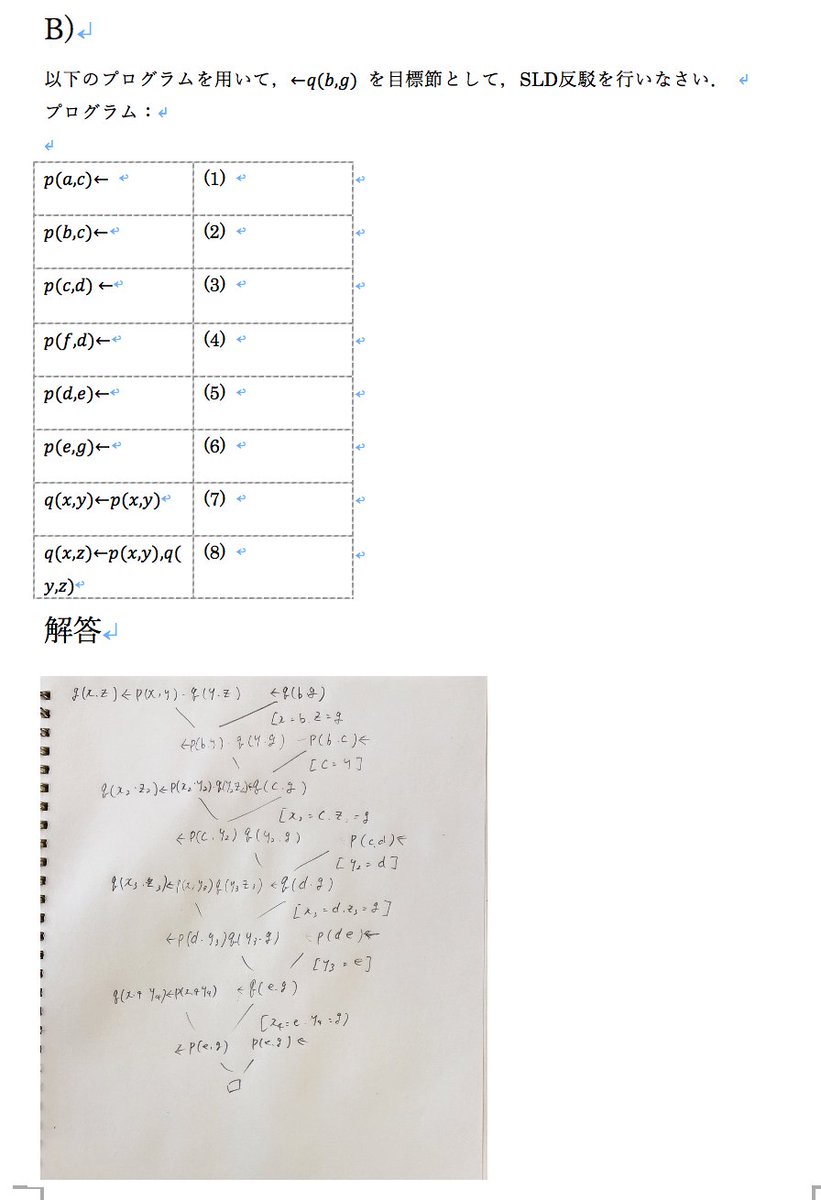 B)
以下のプログラムを用いて，←q(b,g) を目標節として，SLD反駁を行いなさい．
プログラム：
p(a,c)← (1)
p(b,c)← (2)
p(c,d) ← (3)
p(f,d)← (4)
p(d,e)← (5)
p(e,g)← (6)
q(x,y)←p(x,y) (7)
q(x,z)←p(x,y),q( (8)
y,z)
解答
q(x.z)←p(x,y).q(y.z) ←q(b.g)
[x=b.z=g
←p(b.y).q(y.g) p(b.c)←
[c=y]
q(x₂.z₂)←p(x₂.y₂).q(y₂z₂) ←q(c.g)
[x₂=c.z.=g
←p(c.y₂) q(y₂.g) p(c,d)←
[y₂=d]
q(x₃.z₃)←p(x₃y₃)q(y₃z₃) ←q(d.g)
[x₃=d.z₃=g]
←p(d.y₃)q(y₃.g) p(de)←
[y₃=e]
q(x₄ y₄)←p(x₄y₄) ←q(e.g)
[x₄=e y₄=g)
←p(e.g) p(e.g)←
□